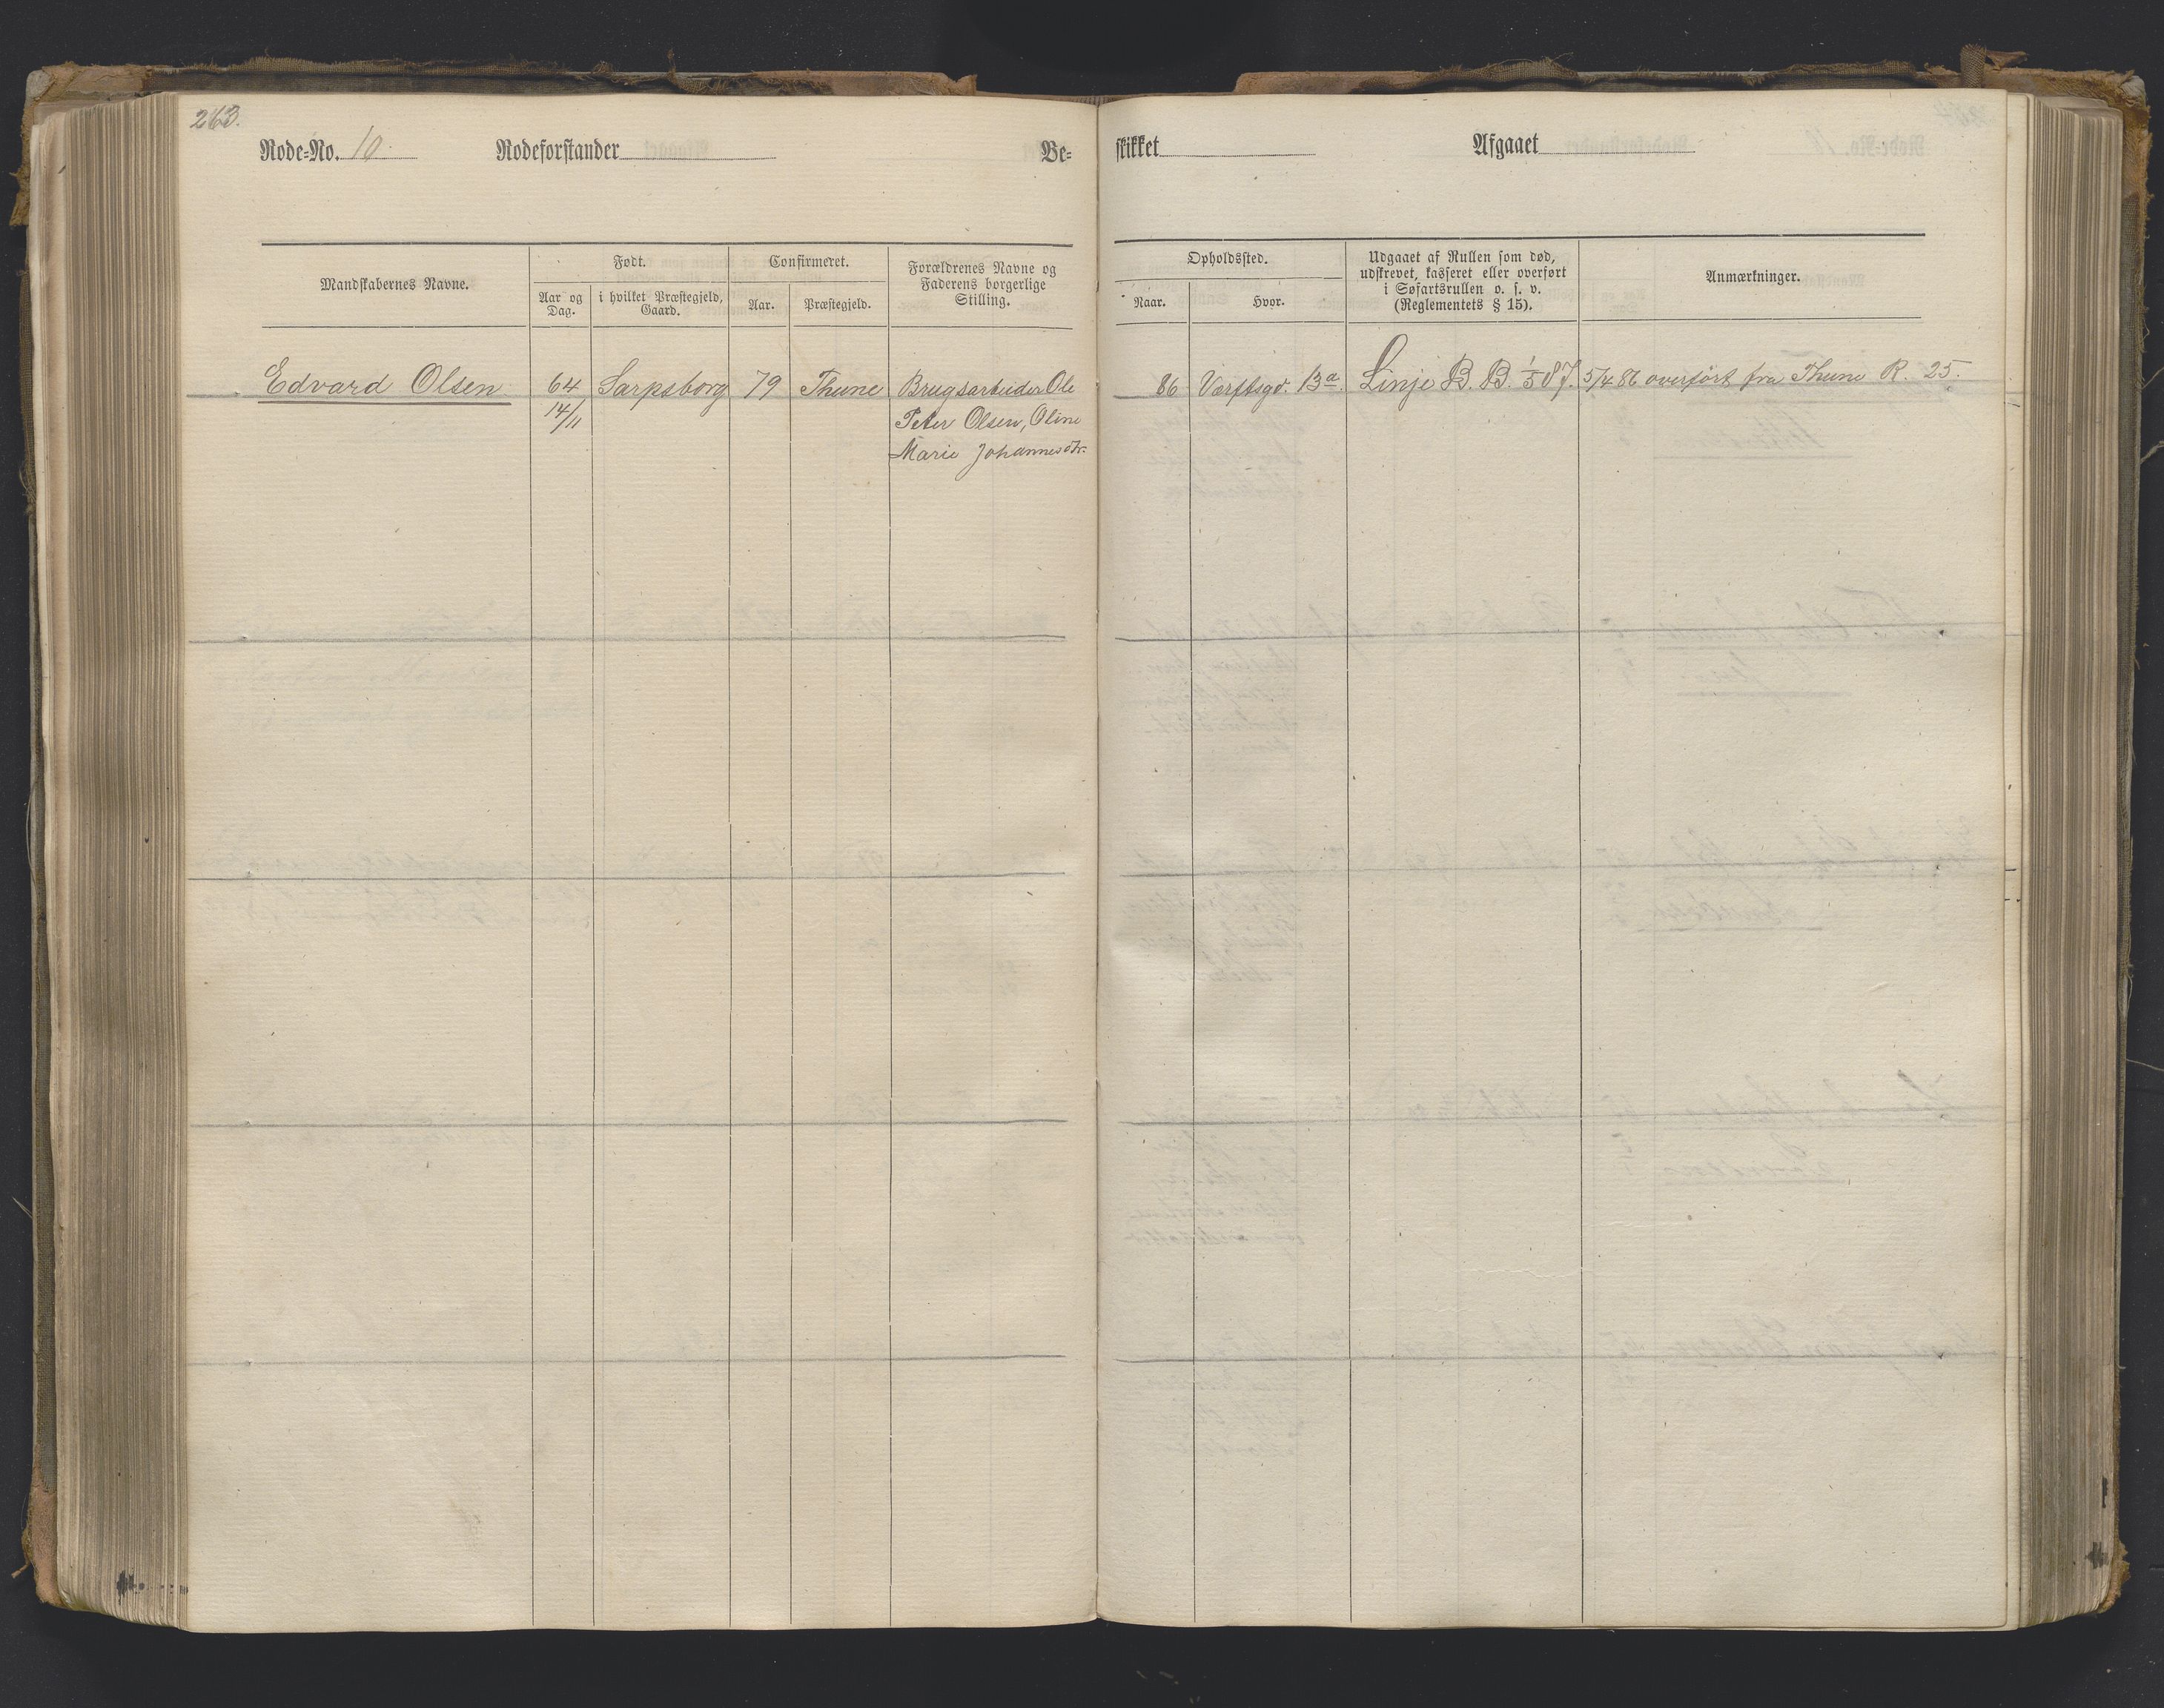 263.
Rode-No. 10
Rodeforstander
Be-
skikket
Afgaaet
Mandskabernes Navne.
Født.
Aar og
Dag.
i hvilket Præstegjeld,
Gaard.
Confirmeret.
Aar.
Præstegjeld.
Forældrenes Navne og
Faderens borgerlige
Stilling.
Opholdssted.
Naar.
Hvor.
Udgaaet af Rullen som død,
udskrevet, kasseret eller overført
i Søfartsrullen o. s. v.
(Reglementets § 15).
Anmærkninger.
Edvard Olsen 64 Sarpsborg 79 Thune Brugsarbeider Ole
14/11 Peter Olsen, Oline
Marie Johannesdtr.
86 Værftsgd. 13a. Linje B. B. 1/5 87. 5/4 86 overført fra Thune R. 25.